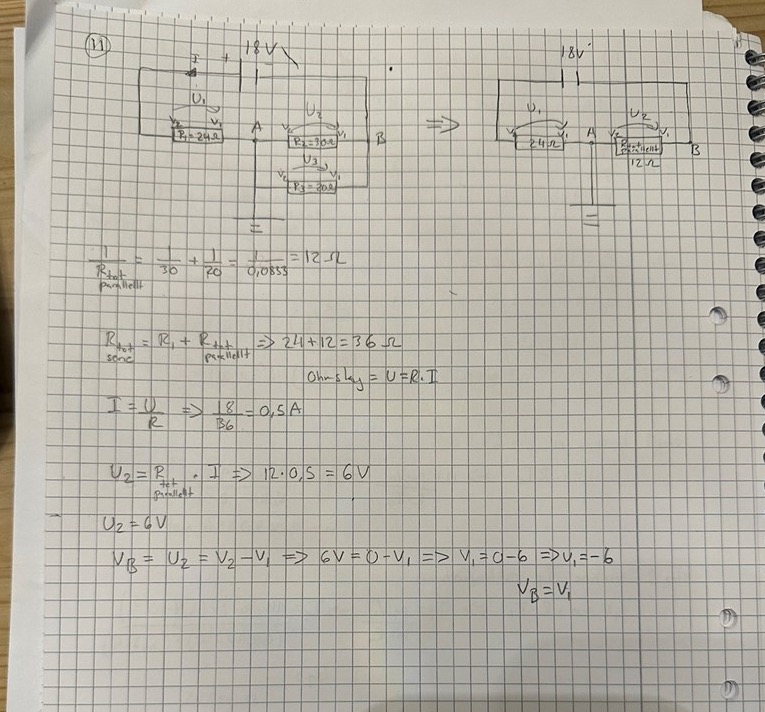 11
I + 18V
U₁
V₂ V₁
R₁=24Ω
A
U₂
V₂ V₁
R₂=30Ω
B
U₃
V₂ V₁
R₃=20Ω
⇒
18V
U₁
V₁
24Ω
A
U₂
V₂ V₁
R tot parallellt
12Ω
B
1/R tot parallellt = 1/30 + 1/20 = 1/0,0833 = 12Ω
R tot serie = R₁ + R tot parallellt => 24+12=36Ω
Ohms lag = U=R·I
I = U/R => 18/36 = 0,5A
U₂ = R tot parallellt · I => 12·0,5 = 6V
U₂ = 6V
V_B = U₂ = V₂-V₁ => 6V=0-V₁ => V₁=0-6 => V₁=-6
V_B=V₁